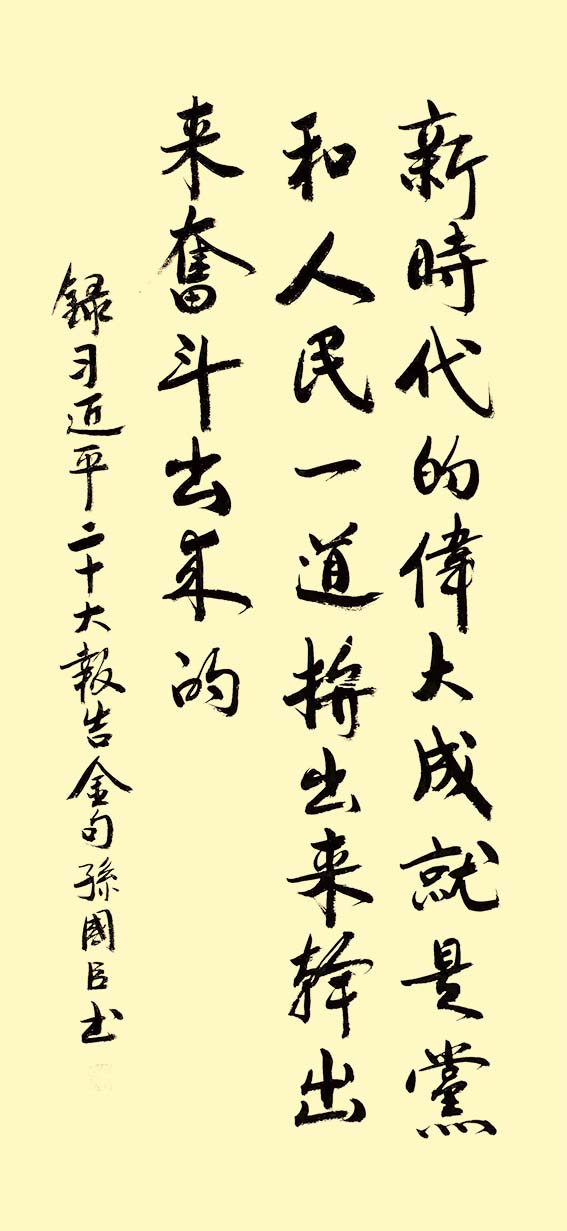 新時代的偉大成就是黨
和人民一道拚出来幹出
来奮斗出来的
録习近平二十大報告金句孫國臣书